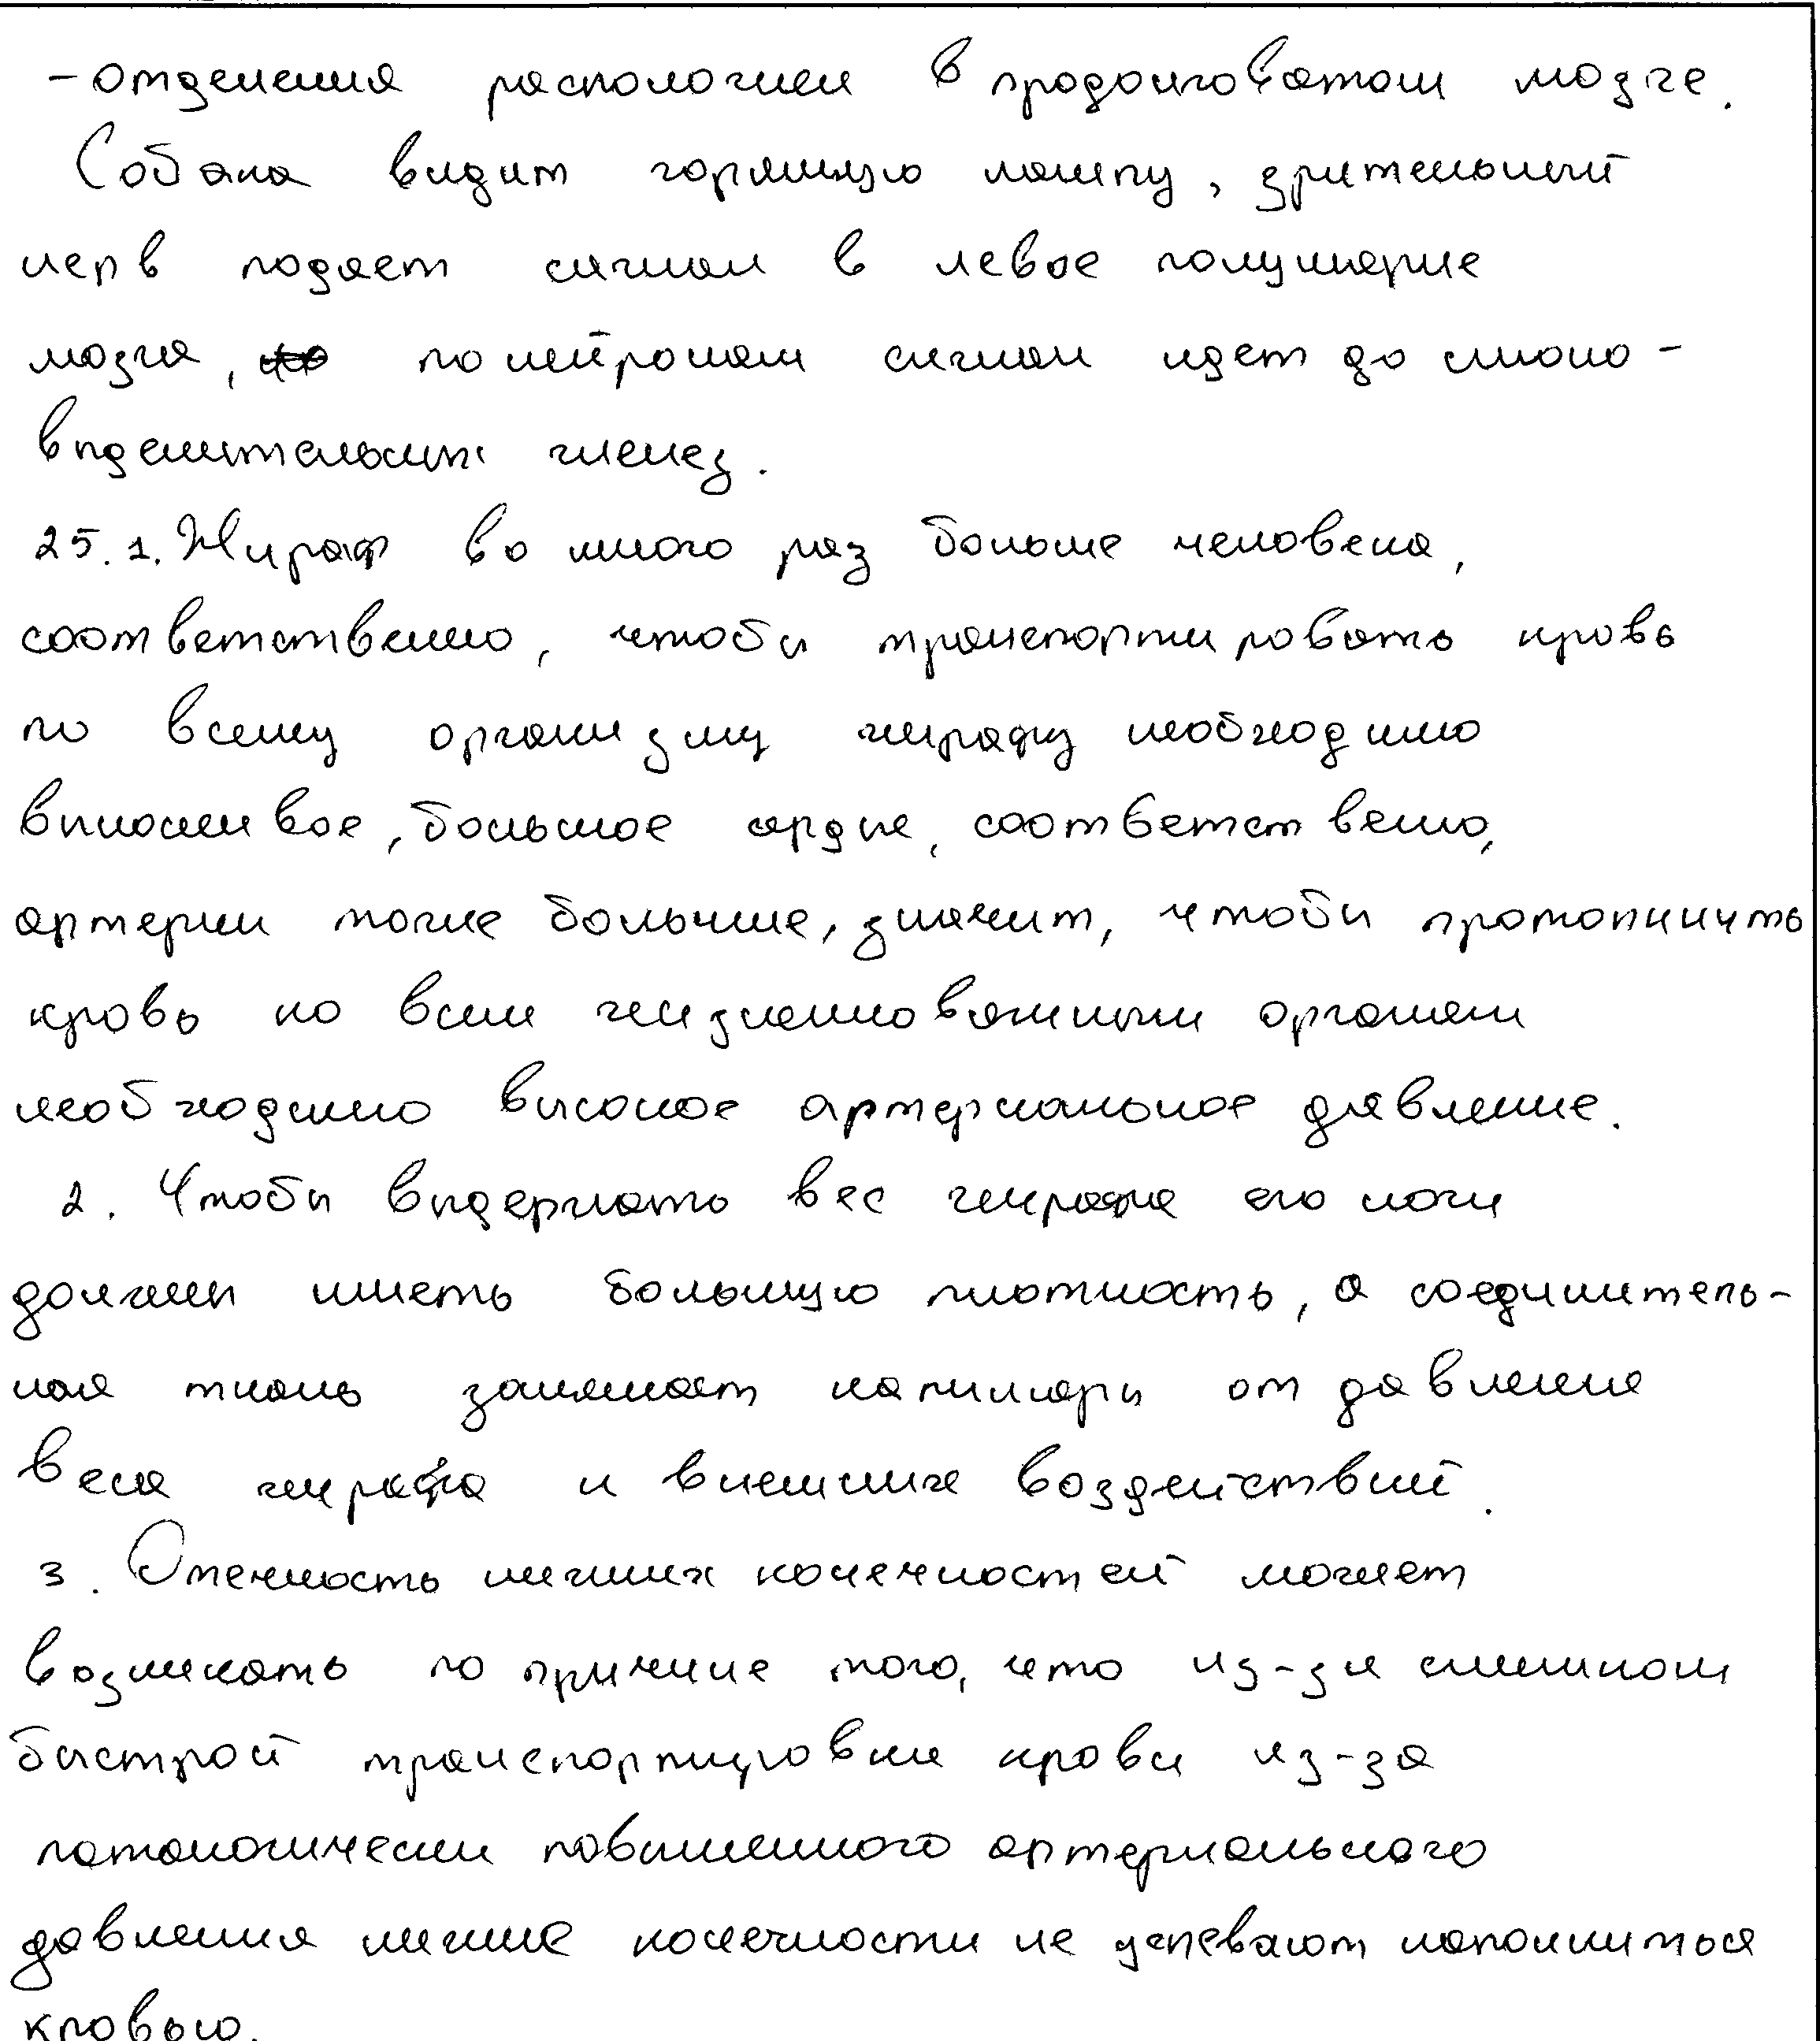 -отделения расположен в продолговатом мозге.
Собака видит горящую лампу, зрительный
нерв подает сигнал в левое полушарие
мозга, по нейронам сигнал идет до слюно-
выделительных желез.
25.1. Жираф во много раз больше человека,
соответственно, чтобы транспортировать кровь
по всему организму жирафу необходимо
выносливое, большое сердце, соответствено,
артерии тоже больше, значит, чтобы протолкнуть
кровь ко всем жизненноважным органам
необходимо высокое артериальное давление.
2. Чтобы выдержать вес жирафа его ноги
должны иметь большую плотность, а соединитель-
ная ткань защищает капилляры от давления
веса жирафа и внешних воздействий.
3. Отечность нижних конечностей может
возникать по причине того, что из-за слишком
быстрой транспортировки крови из-за
патологически повышенного артериального
давления нижние конечности не успевают наполниться
кровью.